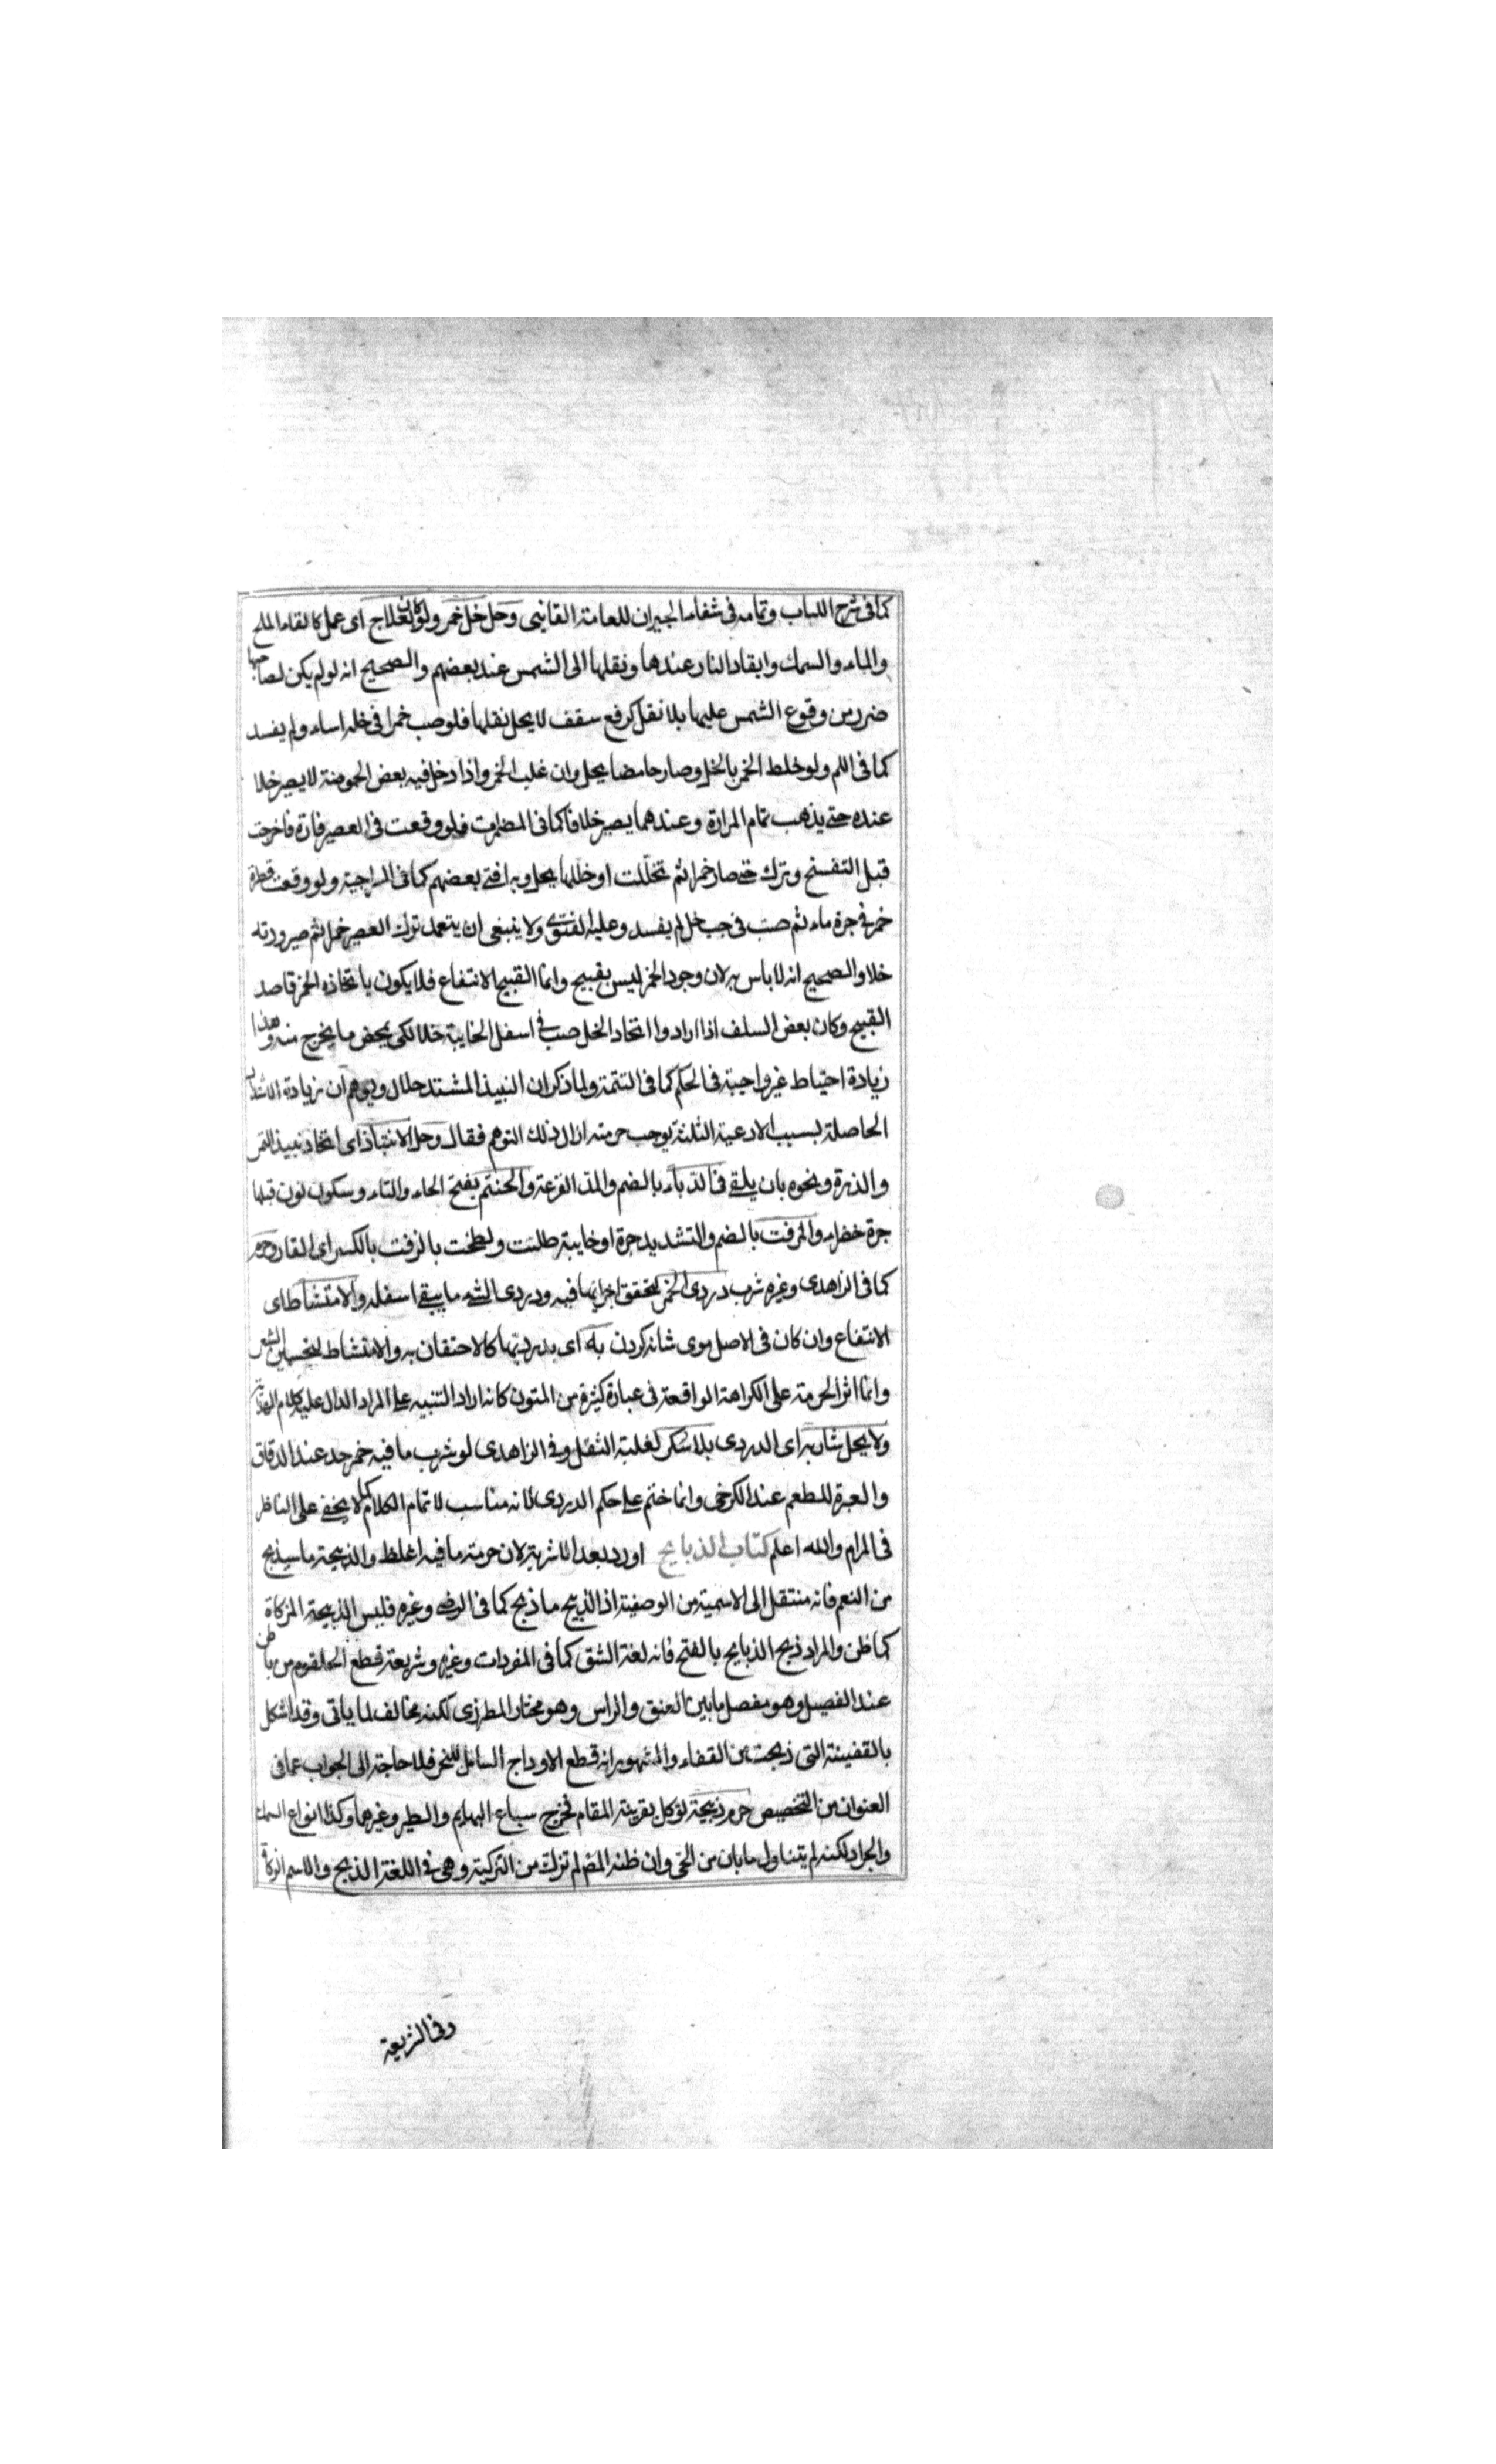 كما فى شرح اللباب وتمامه فى شفاء الجيران للعامة القاينى وحل خل خمر ولو كان لعلاج اى عمل كالقاء الملح
والماء والسمك وايقاد النار عندها ونقلها الى الشمس عند بعضهم والصحيح انه لو لم يكن لصاحبها
ضرر من وقوع الشمس عليها بلا نقل كرفع سقف لا يحل نقلها فلو صب خمرا فى خله اساء ولم يفسد
كما فى اللم ولو خلط الخمر بالخل وصار حامضا يحل وان غلب الخمر واذا دخل فيه بعض الحموضة لا يصير خلا
عنده حتى يذهب تمام المرارة وعندهما يصير خلا فاكما فى المضمرات فلو وقعت فى العصير فارة فاخرجت
قبل التفسخ وترك حتى صار خمرا ثم تخللت او خللها يحل وبه افتى بعضهم كما فى السراجية ولو وقعت قطرة
خمر فى جرة ماء ثم صب فى جب خل لم يفسد وعليه الفتوى ولا ينبغى ان يتعمد ترك العصير خمرا ثم صيرورته
خلا والصحيح انه لا باس به لان وجود الخمر ليس بقبيح وانما القبيح الانتفاع فلا يكون باتخاذه الخمر قاصد
القبيح وكان بعض السلف اذا ارادوا اتخاد الخل صب فى اسفل الخابية خلا لكى يحمض ما يخرج منه وهذا
زيادة احتياط غير واجبة فى الحكم كما فى التتمة ولما ذكر ان النبيذ المشتد حلال ويوهم ان زيادة الاشتداد
الحاصلة بسبب الادعية الثلثة يوجب حرمته ازال ذلك التوهم فقال وحل الانتباذ اى اتخاد نبيذ التمر
والذرة ونحوه بان يلقى فى الدباء بالضم والمد القرعة والحنتم بفتح الحاء والتاء وسكون نون قبلها
جرة خضراء والمزفت بالضم والتشديد جرة او خابية طليت ولطخت بالزفت بالكسر اى القار وحرم
كما فى الزاهدى وغيره شرب دردى الخمر لتحقق اجزائها فيه ودردى الشئ ما يبقى اسفله والامتشاط اى
الانتفاع وان كان فى الاصل موى شانه كردن به اى بدرديها كالاحتقان به والامتشاط لتحسين الشعر
وانما اثر الحرمة على الكراهة الواقعة فى عبارة كثيرة من المتون كانه اراد التنبيه على المراد الدال عليه كلام الهداية
ولا يحل شاربه اى الدردى بلا سكر لغلبة الثقل وفى الزاهدى لو شرب ما فيه خمر حد عند الدقاق
والعبرة للطعم عند الكرخى وانما ختم على حكم الدردى لانه مناسب لاتمام الكلام كما لا يخفى على الناظر
فى المرام والله اعلم كتاب الذبايح اورد بعد الاشربة لان حرمة ما فيه اغلظ والذبيحة ما سيذبح
من النعم فانه منتقل الى الاسمية من الوصفية اذ الذبيح ما ذبح كما فى الرضى وغيره فليس الذبيحة المزكاة
كما ظن والمراد ذبح الذبايح بالفتح فانه لغة الشق كما فى المفردات وغيره وشريعة قطع الحلقوم من باطن
عند الفصيل وهو مفصل ما بين العنق والراس وهو مختار المطرزى لكنه مخالف لما ياتى وقد اشكل
بالقفينة التى ذبحت من القفاء والمشهور انه قطع الاوداج الشامل للنحر فلا حاجة الى الجواب عما فى
العنوان من التخصيص حرم ذبيحة لوكل بقرينة المقام فخرج سباع البهايم والطير وغيرهما وكذا انواع السماء
والجراد لكنه لم يتناول ما بان من الحى وان ظنه المض لم تزك من التزكية وهى فى اللغة الذبح والاسم الزكاة
وفى الشريعة